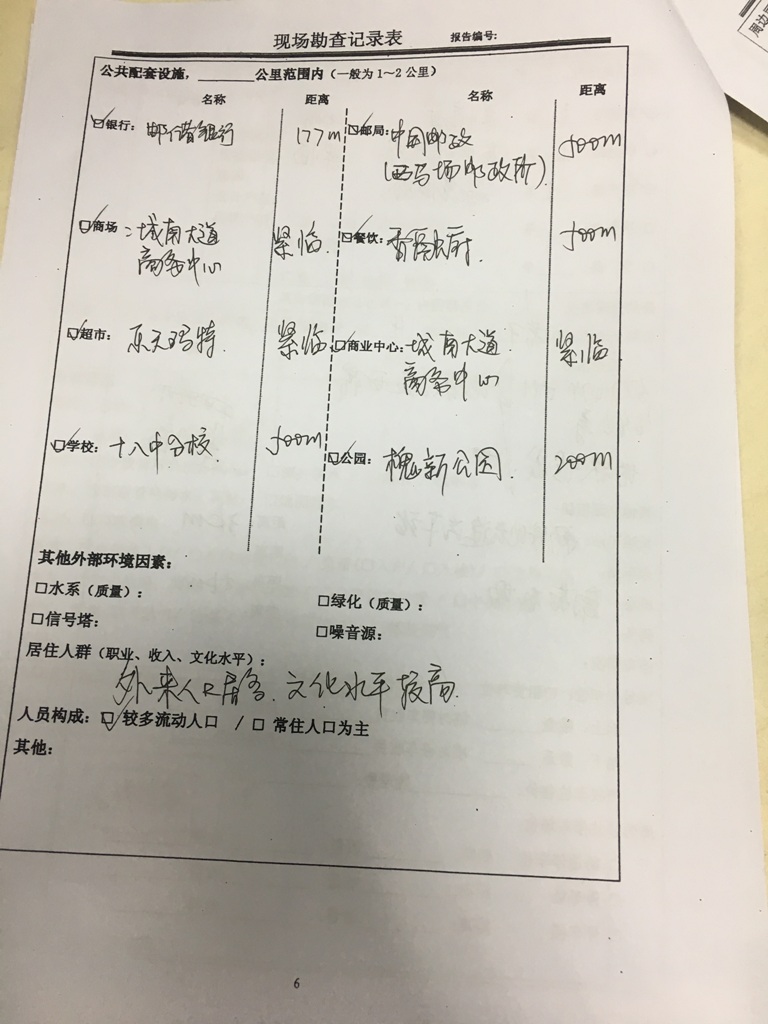 现场勘查记录表 报告编号:
公共配套设施，________公里范围内（一般为1～2公里）
名称 距离 名称 距离
☑银行： 邮储银行 177m ☑邮局： 中国邮政 500m
(西马场邮政所)
☑商场： 城南大道 紧临 ☑餐饮： 500m
商务中心
☑超市： 乐天玛特 紧临 ☑商业中心： 城南大道 紧临
商务中心
☑学校： 十八中分校 500m ☑公园： 槐新公园 200m
其他外部环境因素：
□水系（质量）： □绿化（质量）：
□信号塔： □噪音源：
居住人群（职业、收入、文化水平）：
外来人口居多、文化水平较高
人员构成：☑ 较多流动人口 / □ 常住人口为主
其他：
6
周边